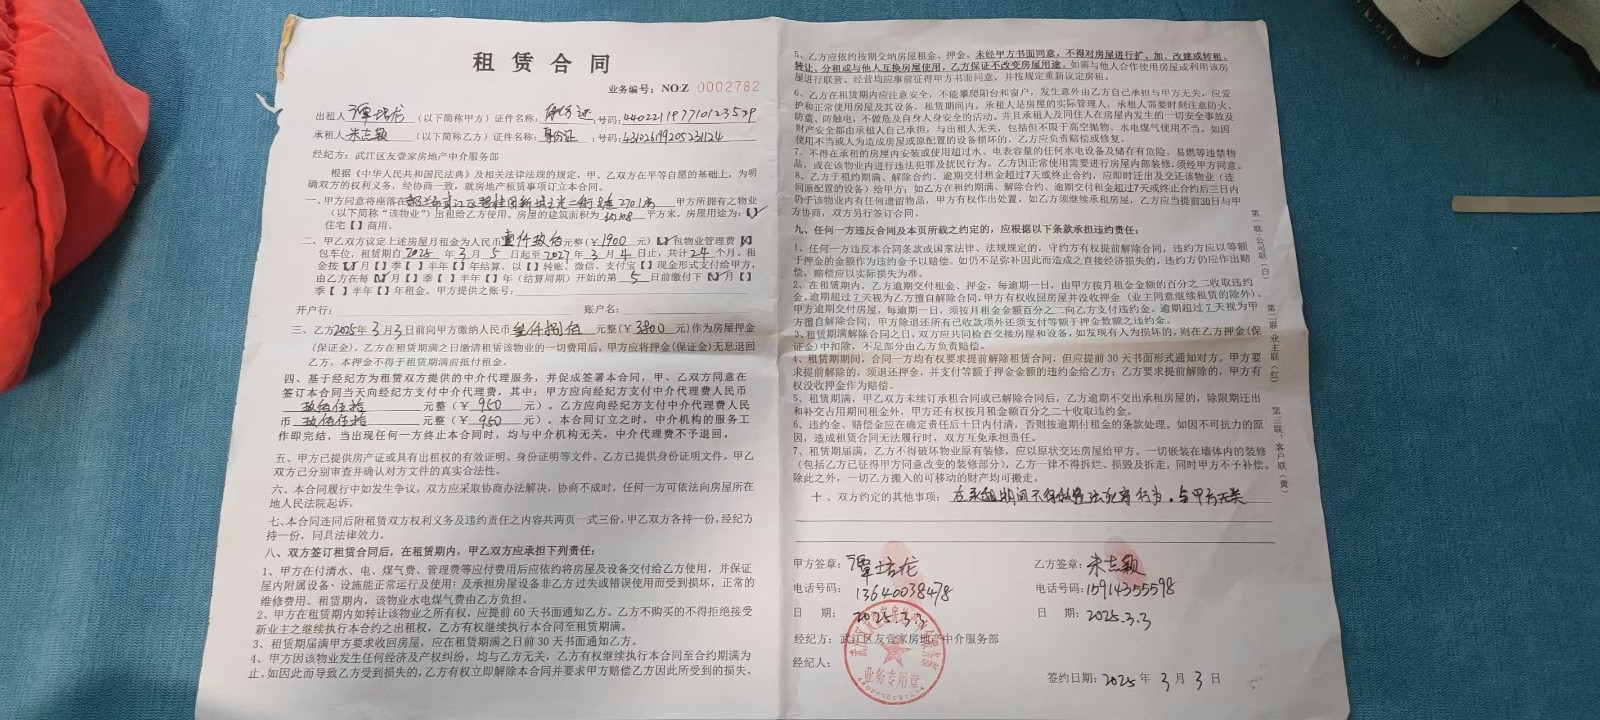 租赁合同
业务编号：NO:Z 0002782
出租人 （以下简称甲方）证件名称：身份证 号码：
承租人 朱志颖 （以下简称乙方）证件名称：身份证 号码：
经纪方：武江区友壹家房地产中介服务部
根据《中华人民共和国民法典》及相关法律法规的规定，甲、乙双方在平等自愿的基础上，为明
确双方的权利义务，经协商一致，就房地产租赁事项订立本合同。
一、甲方同意将座落在 2701房 甲方所拥有之物业
（以下简称“该物业”）出租给乙方使用。房屋的建筑面积为 平方米，房屋用途为：【✓】
住宅【 】商用。
二、甲乙双方议定上述房屋月租金为人民币壹仟玖佰元整（￥1900元）【 】包物业管理费【 】
包车位，租赁期自2025年3月5日起至2027年3月4日止，共计24个月。租
金按【✓】月【 】季【 】半年【 】年结算，以【 】转账、微信、支付宝【 】现金形式支付给甲方，
由乙方在每【✓】月【 】季【 】半年【 】年（结算周期）开始的第5日前缴付下【✓】月【 】
季【 】半年【 】年租金。甲方提供之账号：
开户行： 账户名：
三、乙方2025年3月3日前向甲方缴纳人民币叁仟捌佰元整（￥3800元）作为房屋押金
（保证金），乙方在租赁期满之日缴清租赁该物业的一切费用后，甲方应将押金（保证金）无息退回
乙方。本押金不得于租赁期满前抵付租金。
四、基于经纪方为租赁双方提供的中介代理服务，并促成签署本合同，甲、乙双方同意在
签订本合同当天向经纪方支付中介代理费，其中：甲方应向经纪方支付中介代理费人民币
玖佰伍拾元整（￥950元）。乙方应向经纪方支付中介代理费人民
币玖佰伍拾元整（￥950元）。本合同订立之时，中介机构的服务工
作即完结，当出现任何一方终止本合同时，均与中介机构无关，中介代理费不予退回。
五、甲方已提供房产证或具有出租权的有效证明、身份证明等文件。乙方已提供身份证明文件。甲乙
双方已分别审查并确认对方文件的真实合法性。
六、本合同履行中如发生争议，双方应采取协商办法解决，协商不成时，任何一方可依法向房屋所在
地人民法院起诉。
七、本合同连同后附租赁双方权利义务及违约责任之内容共两页一式三份，甲乙双方各持一份，经纪方
持一份，同具法律效力。
八、双方签订租赁合同后，在租赁期内，甲乙双方应承担下列责任：
1、甲方在付清水、电、煤气费、管理费等应付费用后应依约将房屋及设备交付给乙方使用，并保证
屋内附属设备、设施能正常运行及使用；及承担房屋设备非乙方过失或错误使用而受到损坏，正常的
维修费用。租赁期内，该物业水电煤气费由乙方负担。
2、甲方在租赁期内如转让该物业之所有权，应提前60天书面通知乙方。乙方不购买的不得拒绝接受
新业主之继续执行本合约之出租权，乙方有权继续执行本合同至租赁期满。
3、租赁期届满甲方要求收回房屋，应在租赁期满之日前30天书面通知乙方。
4、甲方因该物业发生任何经济及产权纠纷，均与乙方无关，乙方有权继续执行本合同至合约期满为
止。如因此而导致乙方受到损失的，乙方有权立即解除本合同并要求甲方赔偿乙方因此所受到的损失。
5、乙方应依约按期交纳房屋租金、押金。未经甲方书面同意，不得对房屋进行扩、加、改建或转租、
转让、分租或与他人互换房屋使用，乙方保证不改变房屋用途。如需与他人合作使用房屋或利用该房
屋进行联营、经营均应事前征得甲方书面同意，并按规定重新议定房租。
6、乙方在租赁期内应注意安全，不能攀爬阳台和窗户，发生意外由乙方自己承担与甲方无关，应爱
护和正常使用房屋及其设备，租赁期间内，承租人是房屋的实际管理人，承租人需要时刻注意防火、
防盗、防触电，不做危及自身人身安全的活动。并且承租人及同住人在房屋内发生的一切安全事故及
财产安全都由承租人自己承担，与出租人无关，包括但不限于高空抛物、水电煤气使用不当。如因
使用不当或人为造成房屋或原配置的设备损坏的，乙方应负责赔偿或修复。
7、不得在承租的房屋内安装或使用超过水、电表容量的任何水电设备及储存有危险、易燃等违禁物
品，或在该物业内进行违法犯罪及扰民行为。乙方因正常使用需要进行房屋内部装修，须经甲方同意。
8、乙方于租约期满、解除合约、逾期交付租金超过7天或终止合约，应即时迁出及交还该物业（连
同原配置的设备）给甲方；如乙方在租约期满、解除合约、逾期交付租金超过7天或终止合约后三日内
仍于该物业内有任何遗留物品，甲方有权作出处置。如乙方须继续承租房屋，乙方应当提前30日与甲
方协商，双方另行签订合同。
九、任何一方违反合同及本页所载之约定的，应根据以下条款承担违约责任：
1、任何一方违反本合同条款或国家法律、法规规定的，守约方有权提前解除合同，违约方应以等额
于押金的金额作为违约金予以赔偿。如仍不足弥补因此而造成之直接经济损失的，违约方仍应作出赔
偿，赔偿应以实际损失为准。
2、在租赁期内，乙方逾期交付租金、押金，每逾期一日，由甲方按月租金金额的百分之二收取违约
金。逾期超过7天视为乙方擅自解除合同，甲方有权收回房屋并没收押金（业主同意继续租赁的除外）。
甲方逾期交付房屋，每逾期一日，须按月租金金额百分之二向乙方支付违约金。逾期超过7天视为甲方
擅自解除合同，甲方除退还所有已收款项外还须支付等额于押金数额之违约金。
3、租赁期满解除合同之日，双方应共同检查交接房屋和设备，如发现有人为损坏的，则在乙方押金（保
证金）中扣除，不足部分由乙方负责赔偿。
4、租赁期期间，合同一方均有权要求提前解除租赁合同，但应提前30天书面形式通知对方。甲方要
求提前解除的，须退还押金，并支付等额于押金金额的违约金给乙方；乙方要求提前解除的，甲方有
权没收押金作为赔偿。
5、租赁期满，甲乙双方未续订承租合同或已解除合同后，乙方逾期不交出承租房屋的，除限期迁出
和补交占用期间租金外，甲方还有权按月租金额百分之二十收取违约金。
6、违约金、赔偿金应在确定责任后十日内付清，否则按逾期付租金的条款处理。如因不可抗力的原
因，造成租赁合同无法履行时，双方互免承担责任。
7、租赁期届满，乙方不得破坏物业原有装修，应以原状交还房屋给甲方。一切嵌装在墙体内的装修
（包括乙方已征得甲方同意改变的装修部分），乙方一律不得拆烂、损毁及拆走，同时甲方不予补偿。
除此之外，一切乙方搬入的可移动的财产均可搬走。
十、双方约定的其他事项：在承租期间不得做违法犯罪行为，与甲方无关
甲方签章： 乙方签章：朱志颖
电话号码：13640038478 电话号码：15914355598
日 期：2025.3.3 日 期：2025.3.3
经纪方：武江区友壹家房地产中介服务部
经纪人：
业务专用章
签约日期：2025年3月3日
第一联：公司联（白）
第二联：业主联（红）
第三联：客户联（黄）